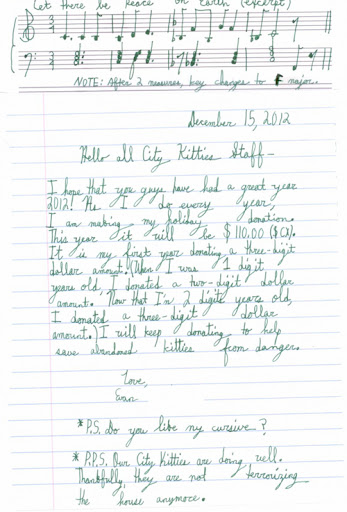 Let there be peace on Earth (excerpt)
NOTE: After 2 measures, key changes to F major.
December 15, 2012
Hello all City Kitties Staff-
I hope that you guys have had a great year
2012! As I do every year,
I am making my holiday donation.
This year it will be $110.00 ($CX).
It is my first year donating a three-digit
dollar amount! (When I was 1 digit
years old, I donated a two-digit dollar
amount. Now that I'm 2 digits years old,
I donated a three-digit dollar
amount.) I will keep donating to help
save abandoned kitties from danger.
Love,
Evan
*P.S. Do you like my cursive?
*P.P.S. Our City Kitties are doing well.
Thankfully, they are not terrorizing
the house anymore.